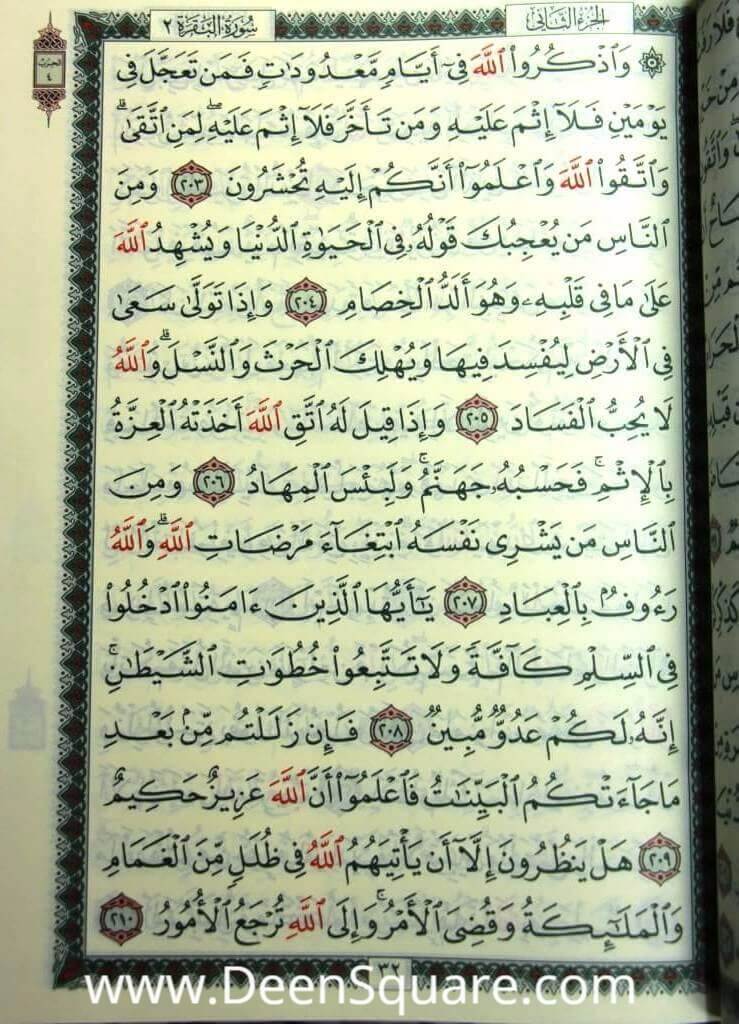 الجزء الثاني
سورة البقرة ٢
الحزب
٤
۞ وَٱذْكُرُوا۟ ٱللَّهَ فِىٓ أَيَّامٍ مَّعْدُودَٰتٍ فَمَن تَعَجَّلَ فِى
يَوْمَيْنِ فَلَآ إِثْمَ عَلَيْهِ وَمَن تَأَخَّرَ فَلَآ إِثْمَ عَلَيْهِ ۖ لِمَنِ ٱتَّقَىٰ ۗ
وَٱتَّقُوا۟ ٱللَّهَ وَٱعْلَمُوٓا۟ أَنَّكُمْ إِلَيْهِ تُحْشَرُونَ ٢٠٣ وَمِنَ
ٱلنَّاسِ مَن يُعْجِبُكَ قَوْلُهُۥ فِى ٱلْحَيَوٰةِ ٱلدُّنْيَا وَيُشْهِدُ ٱللَّهَ
عَلَىٰ مَا فِى قَلْبِهِۦ وَهُوَ أَلَدُّ ٱلْخِصَامِ ٢٠٤ وَإِذَا تَوَلَّىٰ سَعَىٰ
فِى ٱلْأَرْضِ لِيُفْسِدَ فِيهَا وَيُهْلِكَ ٱلْحَرْثَ وَٱلنَّسْلَ ۗ وَٱللَّهُ
لَا يُحِبُّ ٱلْفَسَادَ ٢٠٥ وَإِذَا قِيلَ لَهُ ٱتَّقِ ٱللَّهَ أَخَذَتْهُ ٱلْعِزَّةُ
بِٱلْإِثْمِ ۚ فَحَسْبُهُۥ جَهَنَّمُ ۚ وَلَبِئْسَ ٱلْمِهَادُ ٢٠٦ وَمِنَ
ٱلنَّاسِ مَن يَشْرِى نَفْسَهُ ٱبْتِغَآءَ مَرْضَاتِ ٱللَّهِ ۗ وَٱللَّهُ
رَءُوفٌۢ بِٱلْعِبَادِ ٢٠٧ يَٰٓأَيُّهَا ٱلَّذِينَ ءَامَنُوا۟ ٱدْخُلُوا۟
فِى ٱلسِّلْمِ كَآفَّةً وَلَا تَتَّبِعُوا۟ خُطُوَٰتِ ٱلشَّيْطَٰنِ ۚ
إِنَّهُۥ لَكُمْ عَدُوٌّ مُّبِينٌ ٢٠٨ فَإِن زَلَلْتُم مِّنۢ بَعْدِ
مَا جَآءَتْكُمُ ٱلْبَيِّنَٰتُ فَٱعْلَمُوٓا۟ أَنَّ ٱللَّهَ عَزِيزٌ حَكِيمٌ
٢٠٩ هَلْ يَنظُرُونَ إِلَّآ أَن يَأْتِيَهُمُ ٱللَّهُ فِى ظُلَلٍ مِّنَ ٱلْغَمَامِ
وَٱلْمَلَٰٓئِكَةُ وَقُضِىَ ٱلْأَمْرُ ۚ وَإِلَى ٱللَّهِ تُرْجَعُ ٱلْأُمُورُ ٢١٠
٣٢
www.DeenSquare.com